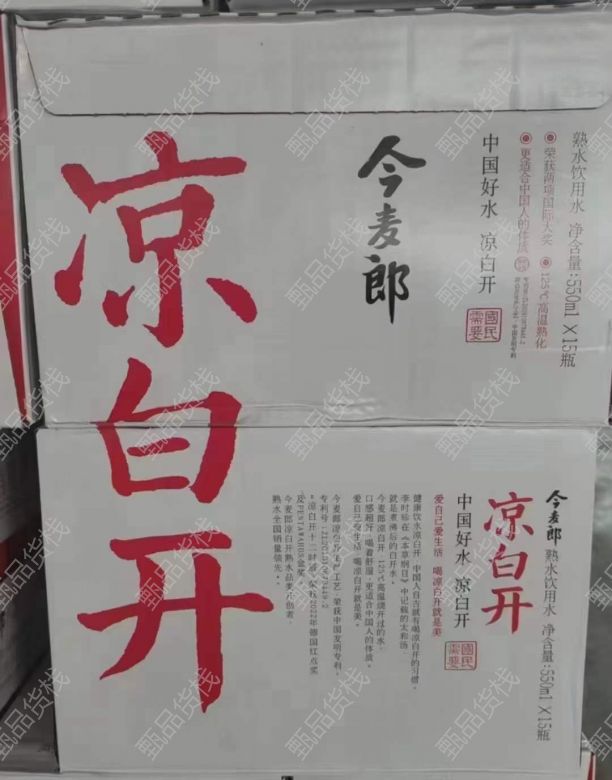 凉白开
今麦郎
熟水饮用水 净含量:550ml X15瓶
荣获两项国际大奖 125℃高温熟化
更适合中国人的体质
中国好水 凉白开
國民需要
今麦郎 熟水饮用水 净含量:550ml X15瓶
凉白开
中国好水 凉白开
國民需要
爱自己爱生活 喝凉白开就是美
健康饮水凉白开,中国人自古就有喝凉白开的习惯,
李时珍在《本草纲目》中记载的太和汤,
就是煮沸后的白开水。
今麦郎凉白开,125℃高温烧开过的水,
口感超好,喝着舒服,更适合中国人的体质。
爱自己爱生活,喝凉白开就是美。
荣获中国发明专利,
"凉白开十二时辰"荣获2022年德国红点奖
及PENTAWARDS金奖
今麦郎凉白开熟水品类开创者,
熟水全国销量领先。
甄品货栈